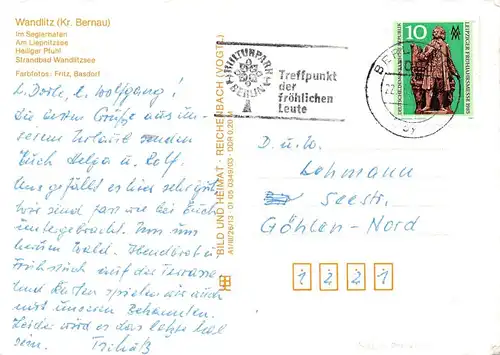 Wandlitz (Kr. Bernau)
Im Seglerhafen
Am Liepnitzsee
Heiliger Pfuhl
Strandbad Wandlitzsee
Farbfotos: Fritz, Basdorf
L. Dorle, l. Wolfgang!
Die ersten Grüße aus un-
serem Urlaub senden
Euch Helga u. Rolf.
Uns gefällt es hier sehr gut
wir sind fast wie bei Euch
untergebracht. Um uns
herum Wald. Abendbrot u.
Frühstück auf der Terrasse
und Karten spielen wir auch
mit unseren Bekannten.
Leider wird es das letzte Mal
sein. Tschüß
BILD UND HEIMAT · REICHENBACH (VOGTL)
A1/III/26/13 01 05 0349/03 · DDR 0,20 M
KULTURPARK
BERLIN
Treffpunkt
der
fröhlichen
Leute
BERLIN
10
LEIPZIGER FRÜHJAHRSMESSE 1985
DEUTSCHE DEMOKRATISCHE REPUBLIK
D. u. W.
Lehmann
Seestr.
Göhlen-Nord
1 2 2 1